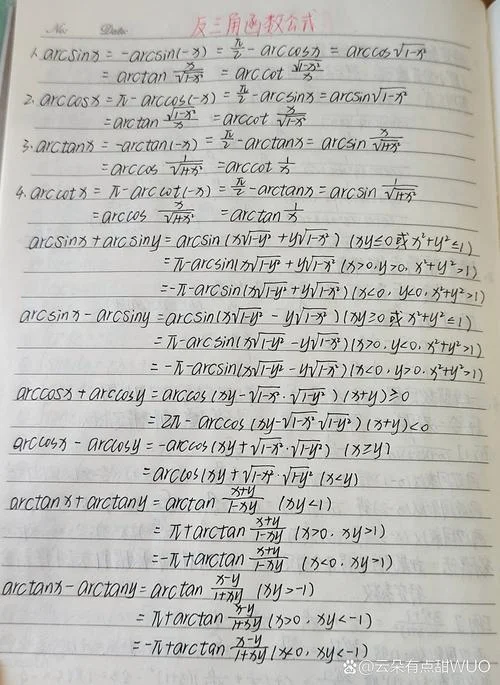 No: Date: 反三角函数公式
1. arcsinx = -arcsin(-x) = π/2 - arccosx = arccos√(1-x²)
= arctan x/√(1-x²) = arccot √(1-x²)/x
2. arccosx = π - arccos(-x) = π/2 - arcsinx = arcsin√(1-x²)
= arctan √(1-x²)/x = arccot x/√(1-x²)
3. arctanx = -arctan(-x) = π/2 - arctanx = arcsin x/√(1+x²)
= arccos 1/√(1+x²) = arccot 1/x
4. arccotx = π - arccot(-x) = π/2 - arctanx = arcsin 1/√(1+x²)
= arccos x/√(1+x²) = arctan 1/x
arcsinx + arcsiny = arcsin(x√(1-y²) + y√(1-x²)) (xy≤0 或 x²+y²≤1)
= π - arcsin(x√(1-y²) + y√(1-x²)) (x>0, y>0, x²+y²>1)
= -π - arcsin(x√(1-y²) + y√(1-x²)) (x<0, y<0, x²+y²>1)
arcsinx - arcsiny = arcsin(x√(1-y²) - y√(1-x²)) (xy≥0 或 x²+y²≤1)
= π - arcsin(x√(1-y²) - y√(1-x²)) (x>0, y<0, x²+y²>1)
= -π - arcsin(x√(1-y²) - y√(1-x²)) (x<0, y>0, x²+y²>1)
arccosx + arccosy = arccos(xy - √(1-x²)·√(1-y²)) (x+y)≥0
= 2π - arccos(xy - √(1-x²)√(1-y²)) (x+y)<0
arccosx - arccosy = -arccos(xy + √(1-x²)·√(1-y²)) (x≥y)
= arccos(xy + √(1-x²)·√(1-y²) (x<y)
arctanx + arctany = arctan (x+y)/(1-xy) (xy<1)
= π + arctan (x+y)/(1-xy) (x>0, xy>1)
= -π + arctan (x+y)/(1-xy) (x<0, xy>1)
arctanx - arctany = arctan (x-y)/(1+xy) (xy>-1)
= π + arctan (x-y)/(1+xy) (x>0, xy<-1)
= -π + arctan (x-y)/(1+xy) (x<0, xy<-1)
@云朵有点甜WUO